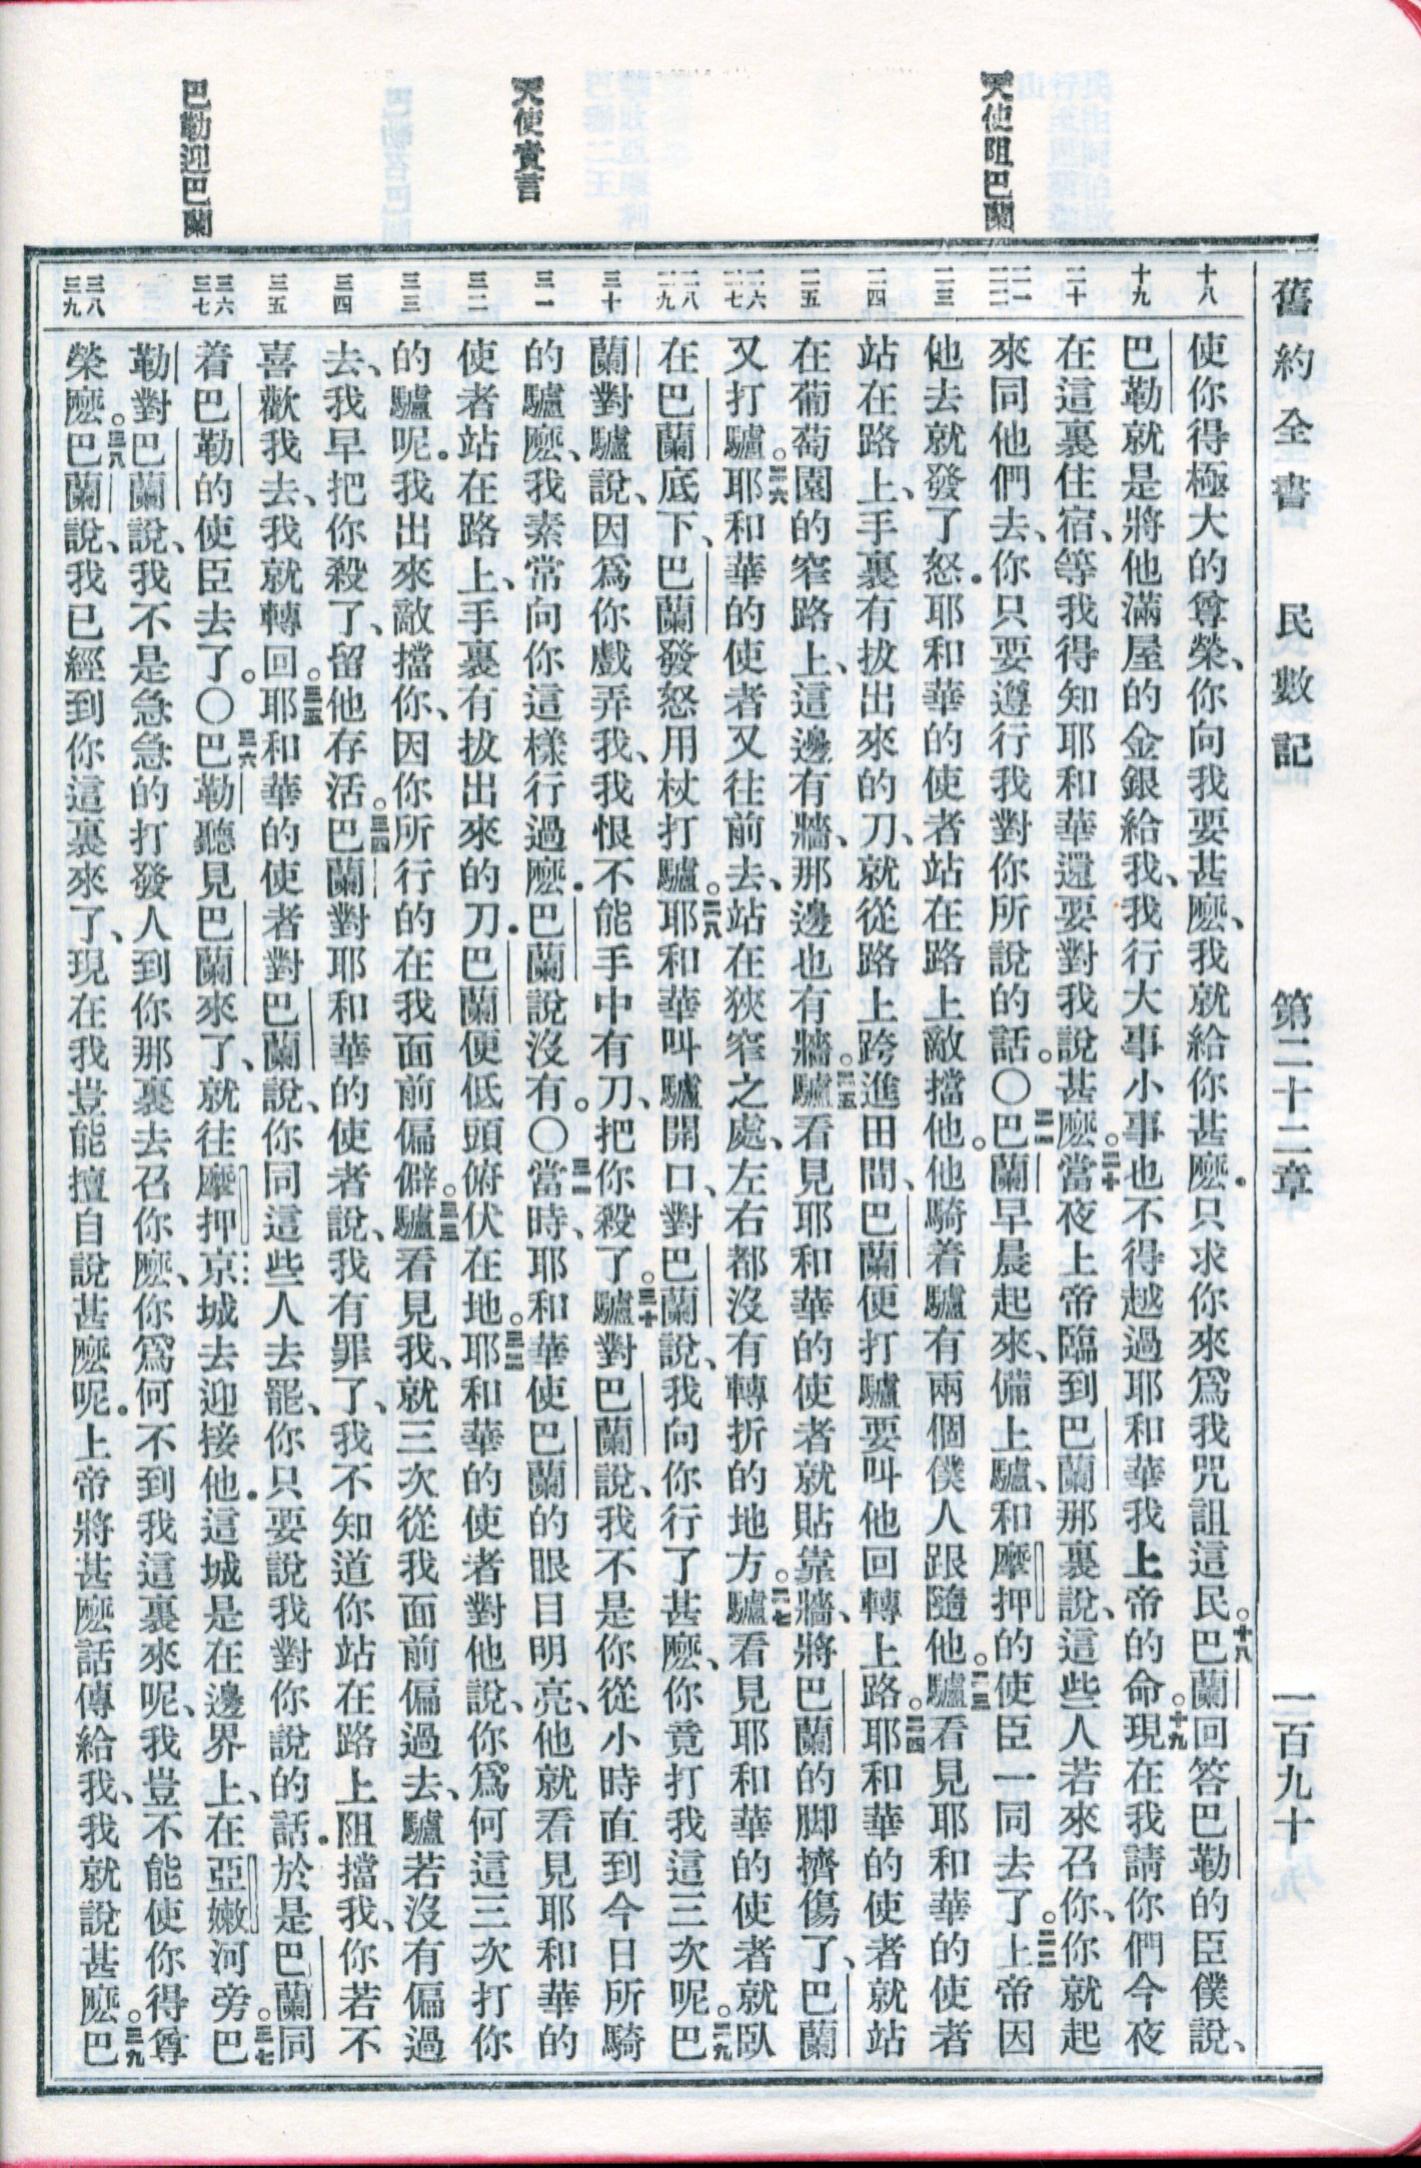 舊約全書 民數記 第二十二章 一百九十
天使阻巴蘭
天使責言
巴勒迎巴蘭
十八
十九
二十
二一
二二
二三
二四
二五
二六
二七
二八
二九
三十
三一
三二
三三
三四
三五
三六
三七
三八
三九
使你得極大的尊榮、你向我要甚麽、我就給你甚麽．只求你來爲我咒詛這民。十八巴蘭回答巴勒的臣僕說、
巴勒就是將他滿屋的金銀給我、我行大事小事也不得越過耶和華我上帝的命。十九現在我請你們今夜
在這裏住宿、等我得知耶和華還要對我說甚麽。二十當夜上帝臨到巴蘭那裏說、這些人若來召你、你就起
來同他們去、你只要遵行我對你所說的話。〇二一巴蘭早晨起來、備上驢、和摩押的使臣一同去了。二二上帝因
他去就發了怒．耶和華的使者站在路上敵擋他。他騎着驢有兩個僕人跟隨他。二三驢看見耶和華的使者
站在路上、手裏有拔出來的刀、就從路上跨進田間、巴蘭便打驢要叫他回轉上路。二四耶和華的使者就站
在葡萄園的窄路上、這邊有牆、那邊也有牆。二五驢看見耶和華的使者就貼靠牆、將巴蘭的脚擠傷了、巴蘭
又打驢。二六耶和華的使者又往前去、站在狹窄之處、左右都沒有轉折的地方。二七驢看見耶和華的使者就臥
在巴蘭底下、巴蘭發怒用杖打驢。二八耶和華叫驢開口、對巴蘭說、我向你行了甚麽、你竟打我這三次呢。二九巴
蘭對驢說、因爲你戲弄我、我恨不能手中有刀、把你殺了。三十驢對巴蘭說、我不是你從小時直到今日所騎
的驢麽、我素常向你這樣行過麽．巴蘭說沒有。〇三一當時、耶和華使巴蘭的眼目明亮、他就看見耶和華的
使者站在路上、手裏有拔出來的刀．巴蘭便低頭俯伏在地。三二耶和華的使者對他說、你爲何這三次打你
的驢呢．我出來敵擋你、因你所行的在我面前偏僻。三三驢看見我、就三次從我面前偏過去、驢若沒有偏過
去、我早把你殺了、留他存活。三四巴蘭對耶和華的使者說、我有罪了、我不知道你站在路上阻擋我、你若不
喜歡我去、我就轉回。三五耶和華的使者對巴蘭說、你同這些人去罷、你只要說我對你說的話．於是巴蘭同
着巴勒的使臣去了。〇三六巴勒聽見巴蘭來了、就往摩押京城去迎接他．這城是在邊界上、在亞嫩河旁。三七巴
勒對巴蘭說、我不是急急的打發人到你那裏去召你麽、你爲何不到我這裏來呢、我豈不能使你得尊
榮麽。三八巴蘭說、我已經到你這裏來了、現在我豈能擅自說甚麽呢．上帝將甚麽話傳給我、我就說甚麽。三九巴